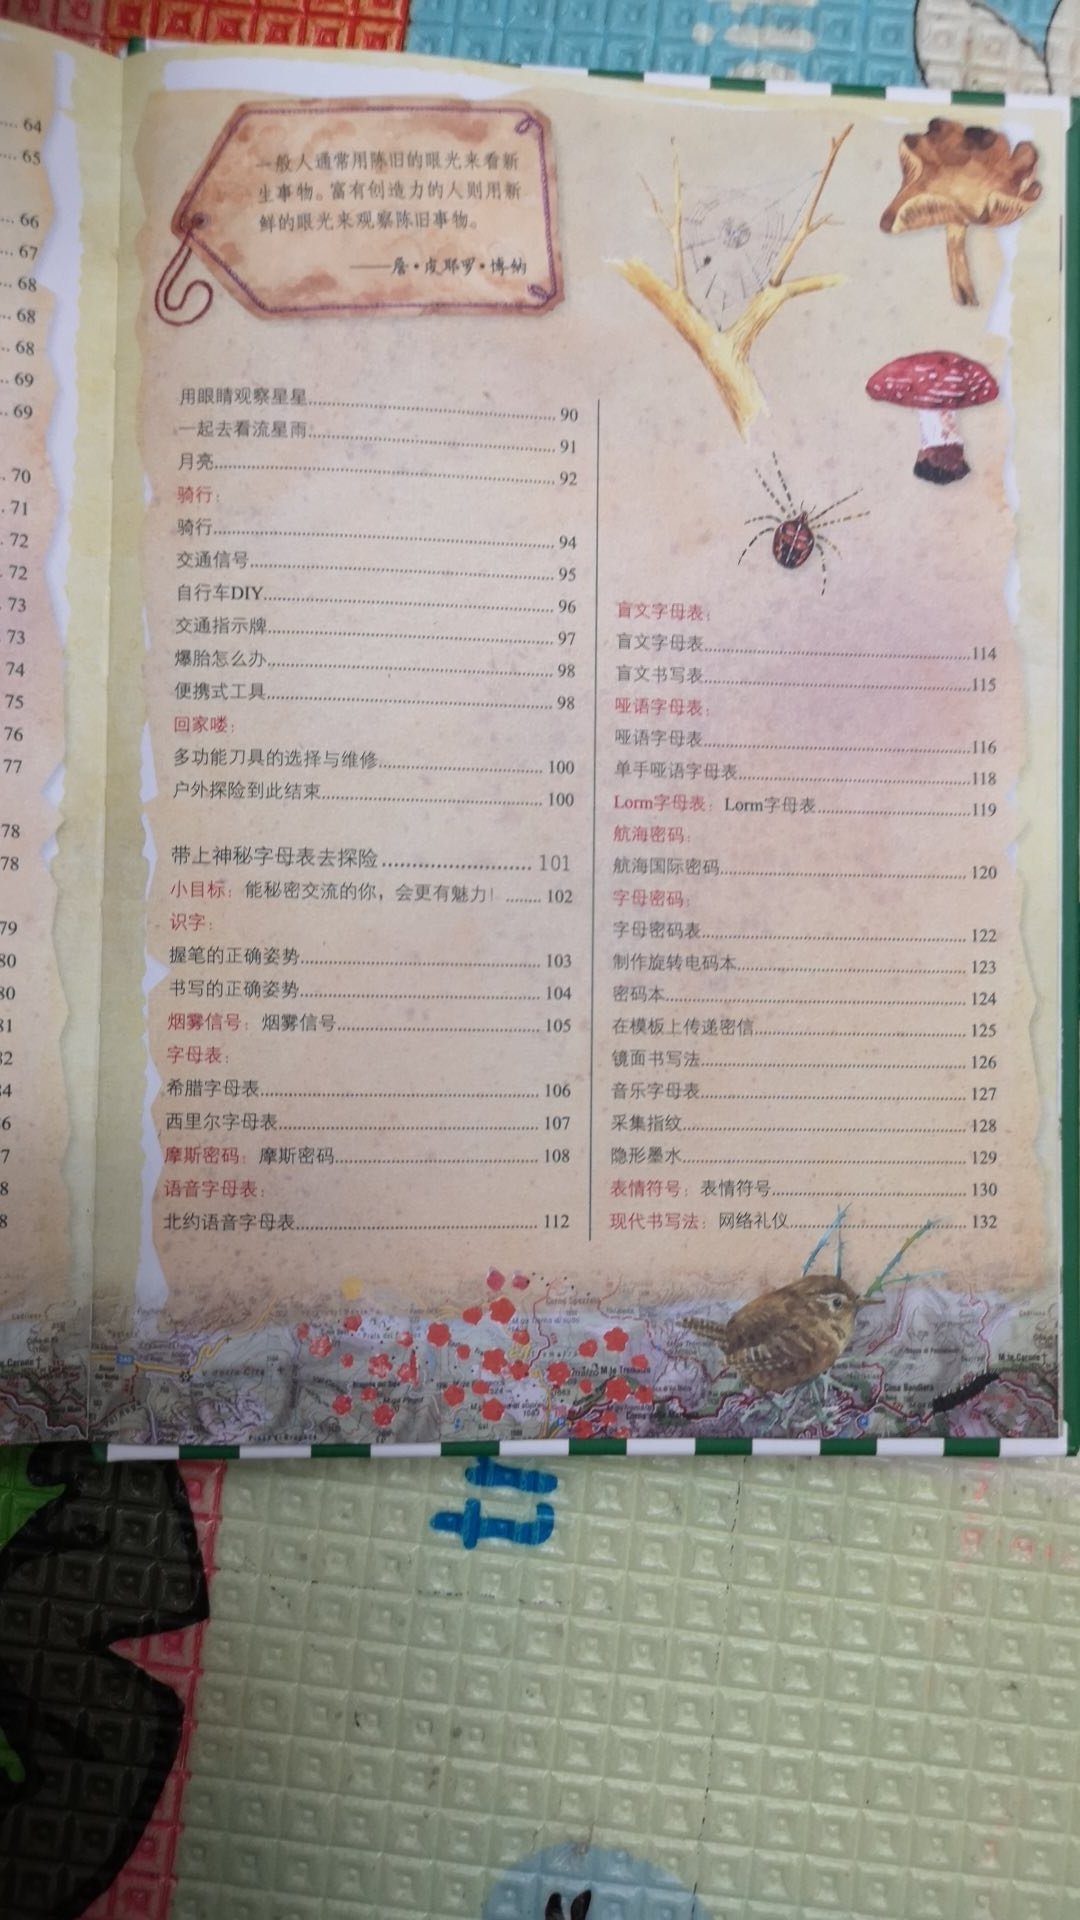 64
65
66
67
68
68
68
69
69
70
71
72
72
73
73
74
75
76
77
78
78
79
80
80
81
82
一般人通常用陈旧的眼光来看新
生事物。富有创造力的人则用新
鲜的眼光来观察陈旧事物。
——詹·皮耶罗·博纳
用眼睛观察星星 90
一起去看流星雨 91
月亮 92
骑行：
骑行 94
交通信号 95
自行车DIY 96
交通指示牌 97
爆胎怎么办 98
便携式工具 98
回家喽：
多功能刀具的选择与维修 100
户外探险到此结束 100
带上神秘字母表去探险 101
小目标：能秘密交流的你，会更有魅力！ 102
识字：
握笔的正确姿势 103
书写的正确姿势 104
烟雾信号：烟雾信号 105
字母表：
希腊字母表 106
西里尔字母表 107
摩斯密码：摩斯密码 108
语音字母表：
北约语音字母表 112
盲文字母表：
盲文字母表 114
盲文书写表 115
哑语字母表：
哑语字母表 116
单手哑语字母表 118
Lorm字母表：Lorm字母表 119
航海密码：
航海国际密码 120
字母密码：
字母密码表 122
制作旋转电码本 123
密码本 124
在模板上传递密信 125
镜面书写法 126
音乐字母表 127
采集指纹 128
隐形墨水 129
表情符号：表情符号 130
现代书写法：网络礼仪 132
Cima Bandiera
M.te Carone
tr